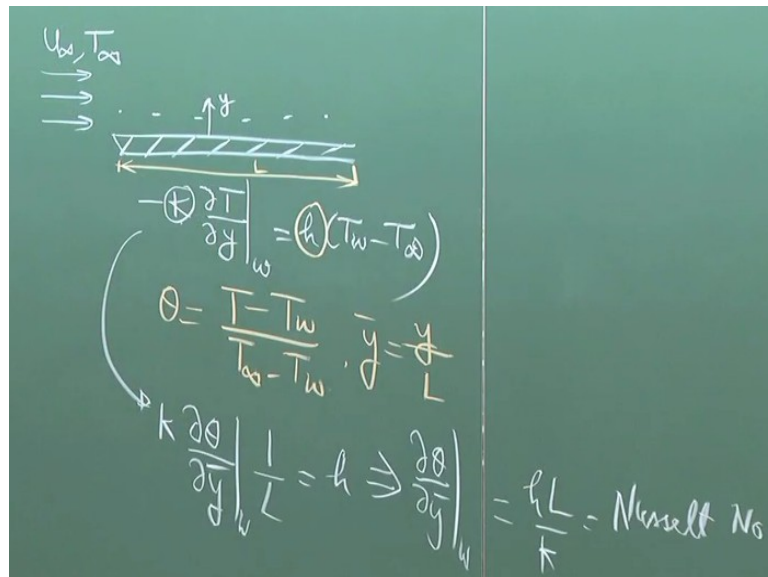 u∞, T∞
y
L
-k ∂T/∂y|w = h(Tw - T∞)
θ = (T - Tw)/(T∞ - Tw) . ȳ = y/L
k ∂θ/∂ȳ|w 1/L = h ⇒ ∂θ/∂ȳ|w = hL/k = Nusselt No